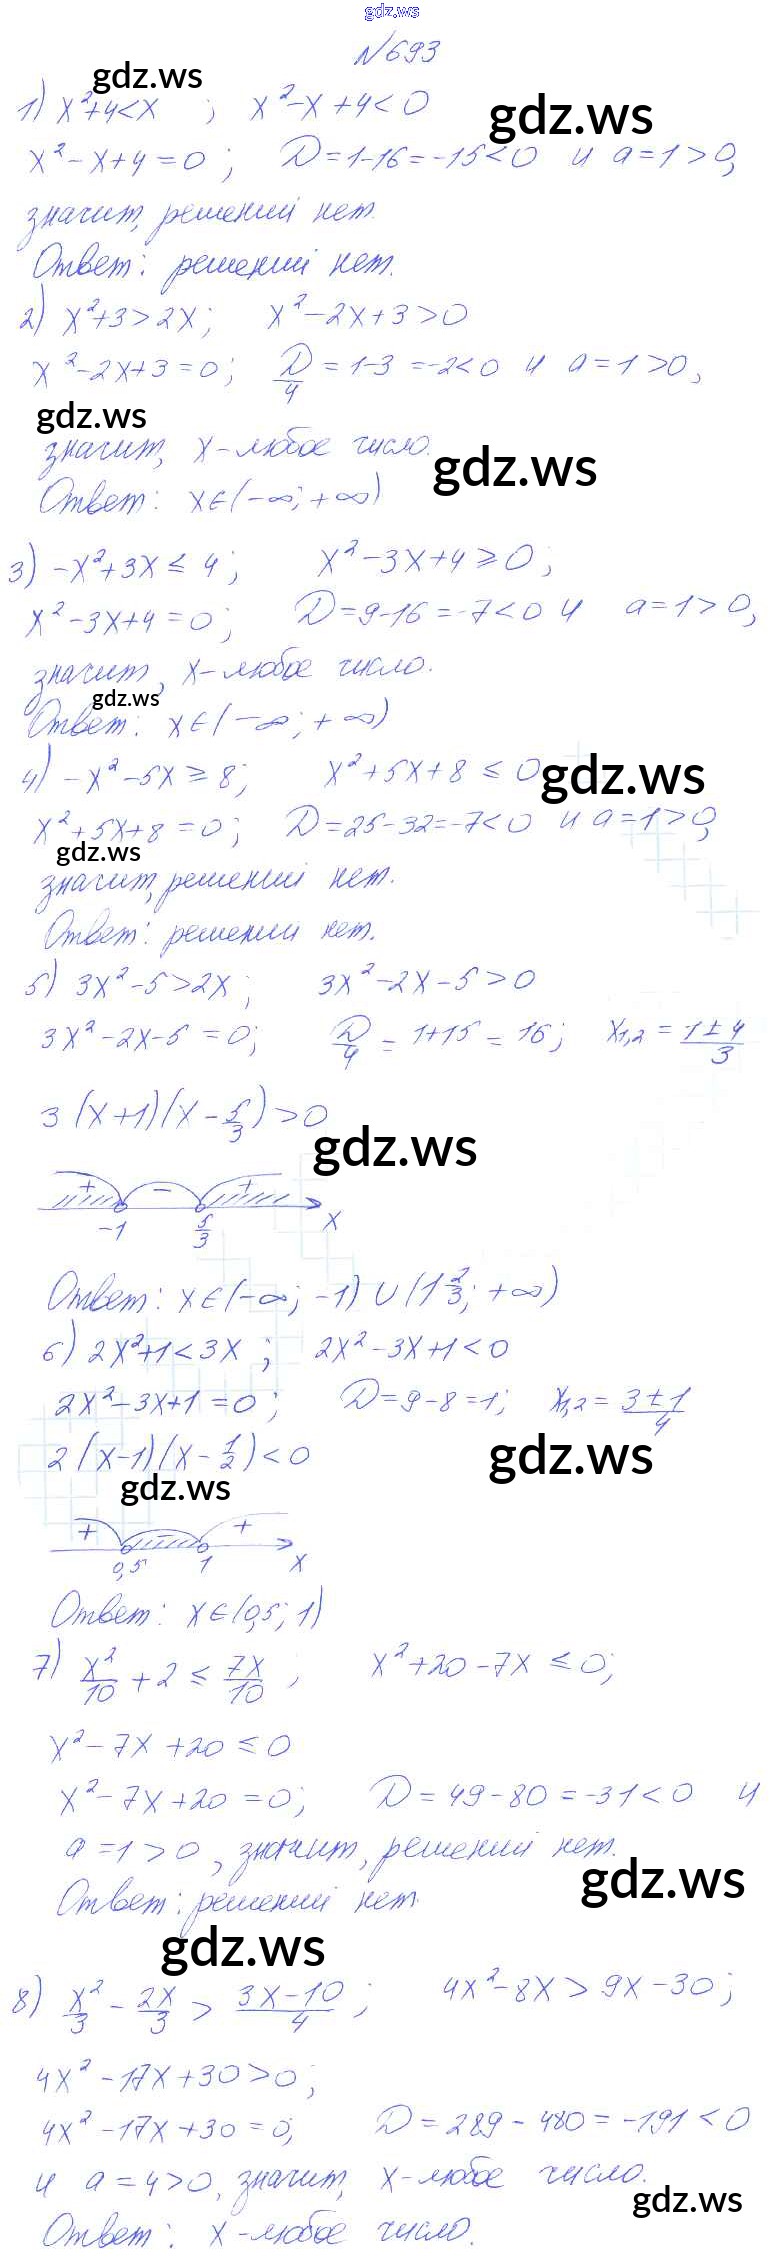 gdz.ws
№693
gdz.ws
1) x²+4<x ; x²-x+4<0
gdz.ws
x²-x+4=0 ; D=1-16=-15<0 и a=1>0,
значит, решений нет.
Ответ: решений нет.
2) x²+3>2x; x²-2x+3>0
x²-2x+3=0; D/4=1-3=-2<0 и a=1>0,
gdz.ws
значит, x-любое число.
gdz.ws
Ответ: x∈(-∞; +∞)
3) -x²+3x≤4; x²-3x+4≥0;
x²-3x+4=0; D=9-16=-7<0 и a=1>0,
значит, x-любое число.
gdz.ws
Ответ: x∈(-∞; +∞)
4) -x²-5x≥8; x²+5x+8≤0
gdz.ws
x²+5x+8=0; D=25-32=-7<0 и a=1>0,
gdz.ws
значит, решений нет.
Ответ: решений нет.
5) 3x²-5>2x; 3x²-2x-5>0
3x²-2x-5=0; D/4=1+15=16; x1,2=(1±4)/3
3(x+1)(x-5/3)>0
gdz.ws
+ - +
-1 5/3 x
Ответ: x∈(-∞; -1)∪(1 2/3; +∞)
6) 2x²+1<3x ; 2x²-3x+1<0
2x²-3x+1=0; D=9-8=1; x1,2=(3±1)/4
2(x-1)(x-1/2)<0
gdz.ws
gdz.ws
+ - +
0,5 1 x
Ответ: x∈(0,5; 1)
7) x²/10+2≤7x/10 ; x²+20-7x≤0;
x²-7x+20≤0
x²-7x+20=0; D=49-80=-31<0 и
a=1>0, значит, решений нет.
gdz.ws
Ответ: решений нет.
gdz.ws
8) x²/3-2x/3>(3x-10)/4 ; 4x²-8x>9x-30;
4x²-17x+30>0;
4x²-17x+30=0; D=289-480=-191<0
и a=4>0, значит, x-любое число.
gdz.ws
Ответ: x-любое число.